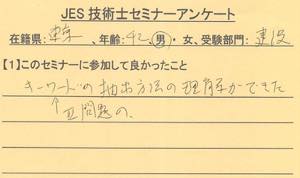 JES 技術士セミナーアンケート
在籍県：東京、年齢：42、男・女、受験部門：建設
【1】このセミナーに参加して良かったこと
キーワードの抽出方法の理解ができた
↑Ⅱ問題の、